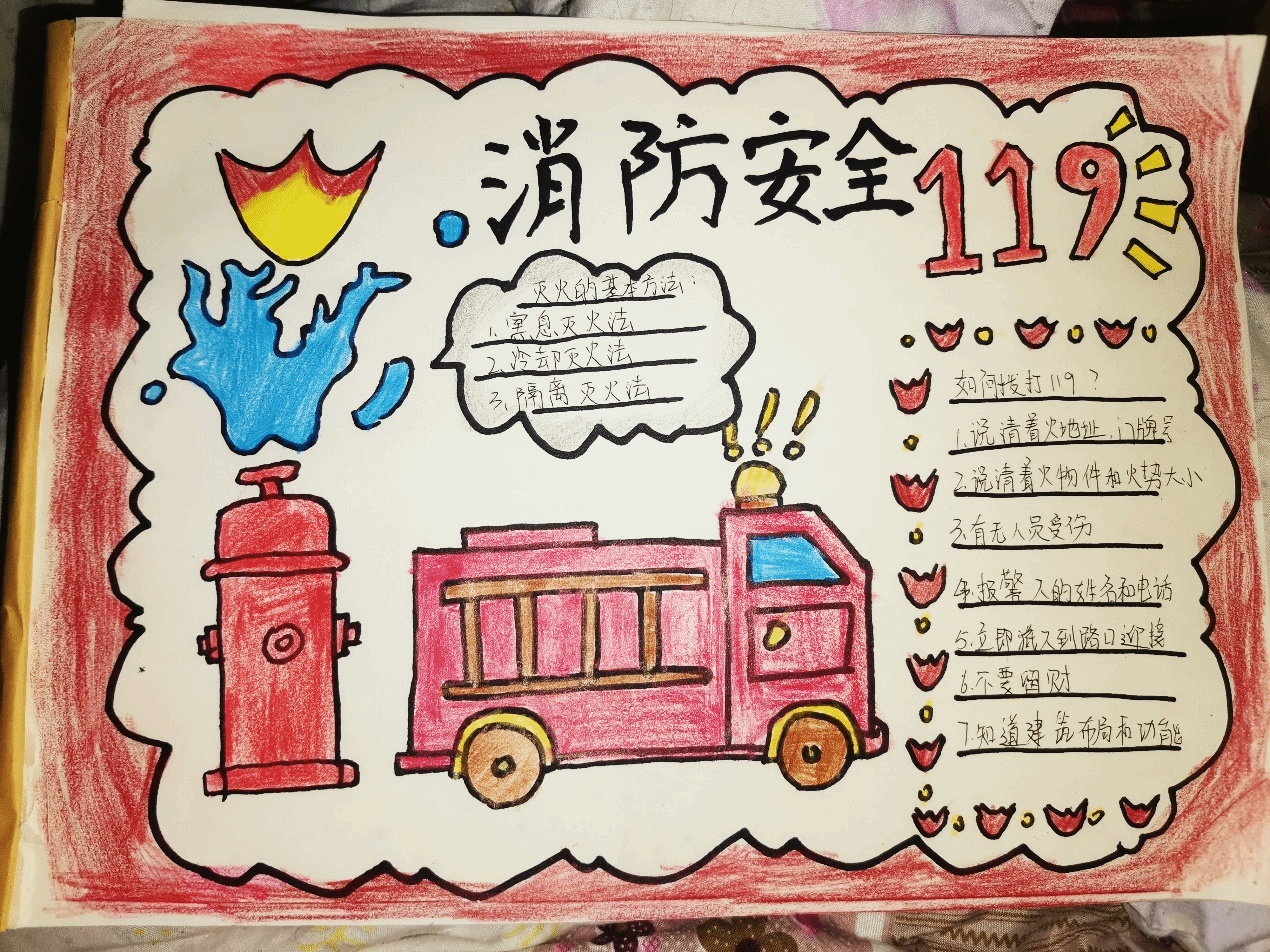 消防安全119
灭火的基本方法：
1.窒息灭火法
2.冷却灭火法
3.隔离灭火法
如何拨打119？
1.说清着火地址、门牌号
2.说清着火物件和火势大小
3.有无人员受伤
4.报警人的姓名和电话
5.立即派人到路口迎接
6.不要留财
7.知道建筑布局和功能